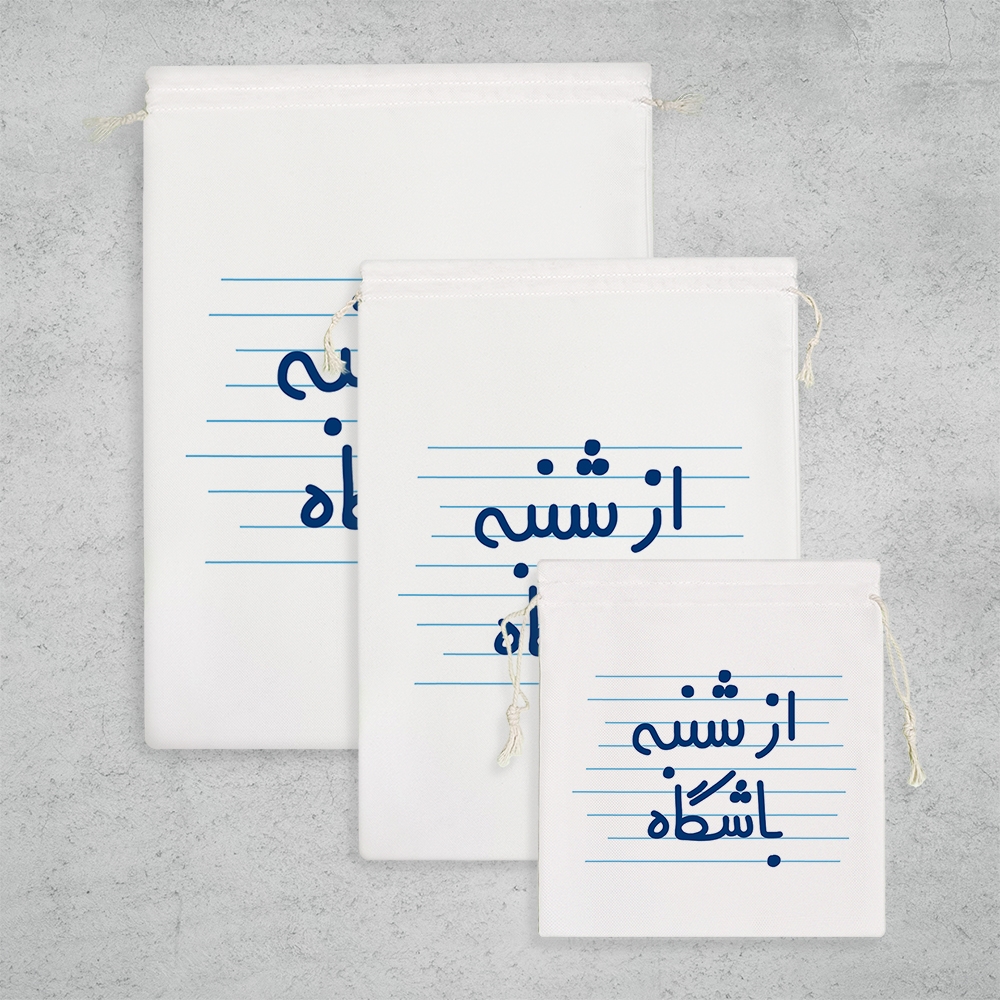 شنبه
گاه
از شنبه
گاه
از شنبه
باشگاه